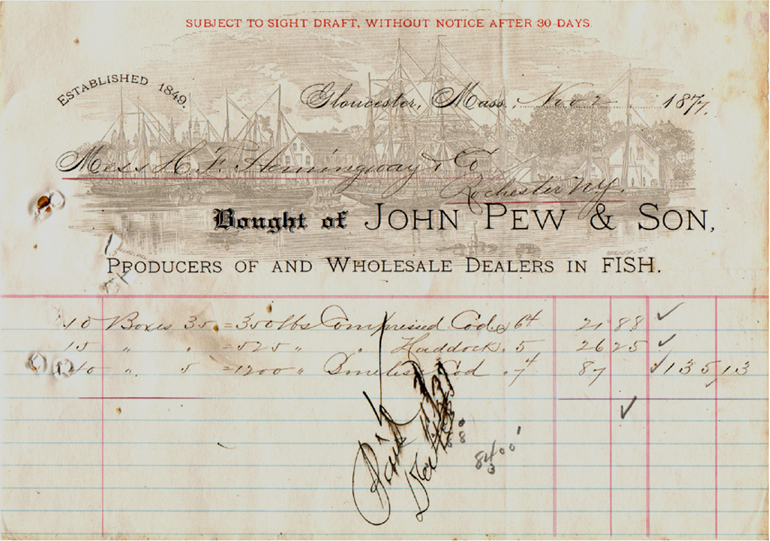 SUBJECT TO SIGHT DRAFT, WITHOUT NOTICE AFTER 30 DAYS.
ESTABLISHED 1849.
Gloucester, Mass. Nov 2 1877.
Mess H. F. Hemingway & Co
Rochester N.Y.
Bought of JOHN PEW & SON,
PRODUCERS OF AND WHOLESALE DEALERS IN FISH.
10 Boxes 35 = 350 lbs Compressed Cod 6¼ 21 88
15 " " = 525 " " Haddock 5 26 25
40 " = 1200 " Cod 7¼ 87 $135,13
Paid